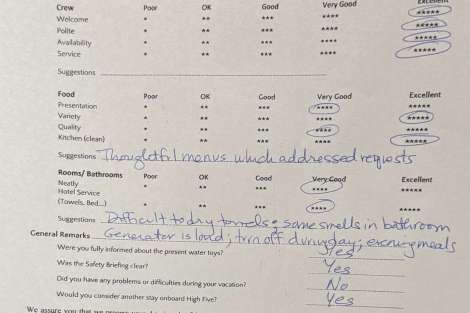 Crew Poor OK Good Very Good Excellent
Welcome * ** *** **** *****
Polite * ** *** **** *****
Availability * ** *** **** *****
Service * ** *** **** *****
Suggestions
Food Poor OK Good Very Good Excellent
Presentation * ** *** **** *****
Variety * ** *** **** *****
Quality * ** *** **** *****
Kitchen (clean) * ** *** **** *****
Suggestions Thoughtful menus which addressed requests
Rooms/ Bathrooms Poor OK Good Very Good Excellent
Neatly * ** *** **** *****
Hotel Service
(Towels, Bed...) * ** *** **** *****
Suggestions Difficult to dry towels; some smells in bathroom
General Remarks Generator is loud; turn off during day; evening meals
Were you fully informed about the present water toys? Yes
Was the Safety Briefing clear? Yes
Did you have any problems or difficulties during your vacation? No
Would you consider another stay onboard High Five? Yes
We assure you that we